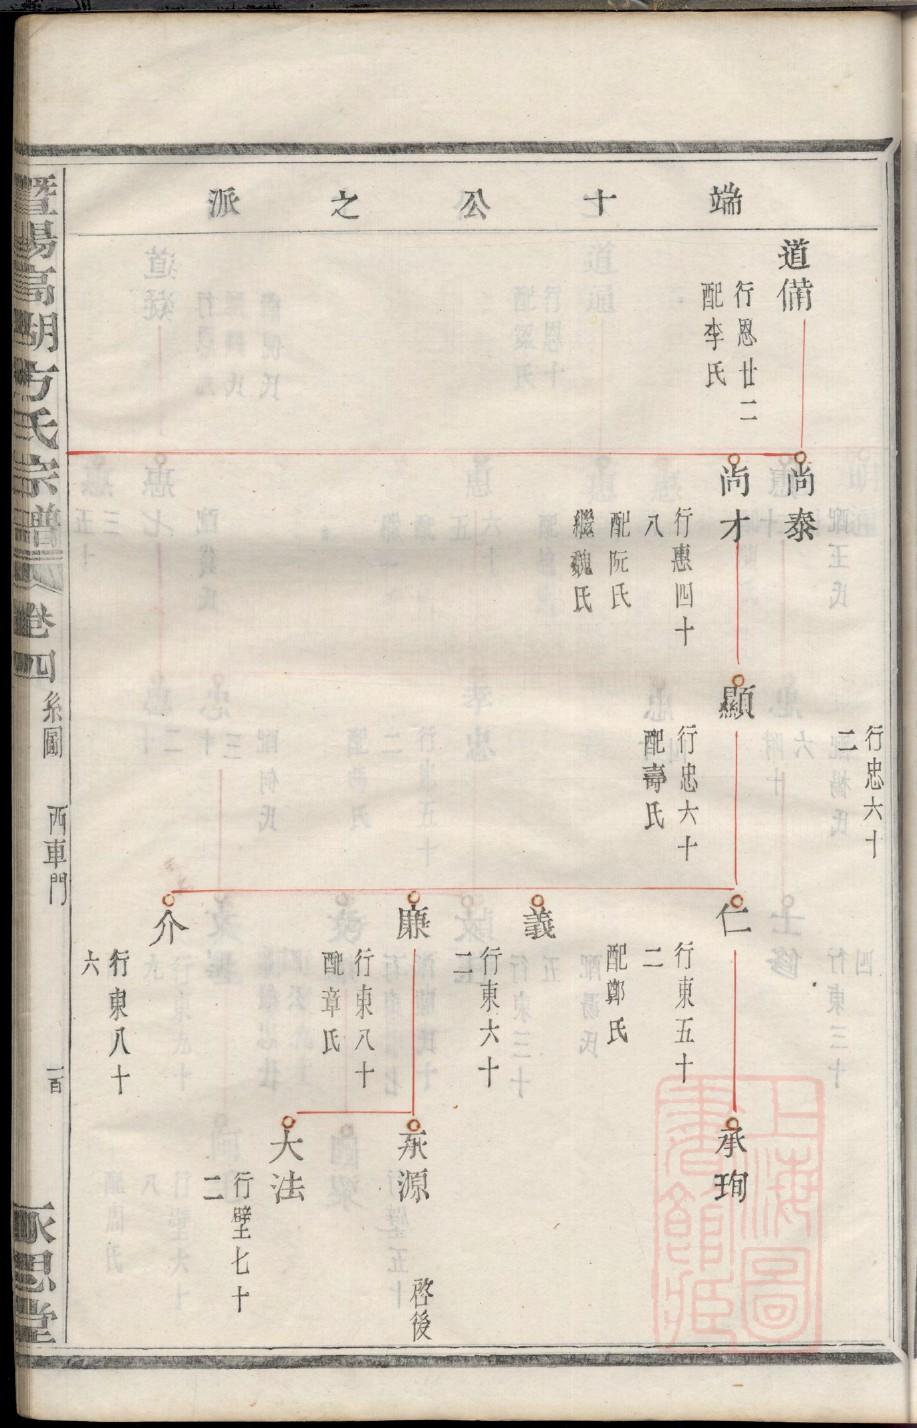 端十公之派
道備
行恩廿二
配李氏
尚泰
尚才
行惠四十
八
配阮氏
繼魏氏
行忠六十
二
顯
行忠六十
配壽氏
仁
行東五十
二
配鄭氏
義
行東六十
二
廉
行東八十
配章氏
介
行東八十
六
承珣
承源
啓後
大法
行壁七十
二
暨陽高湖方氏宗譜
卷四
系圖
西車門
一百
永思堂
上海圖書館藏